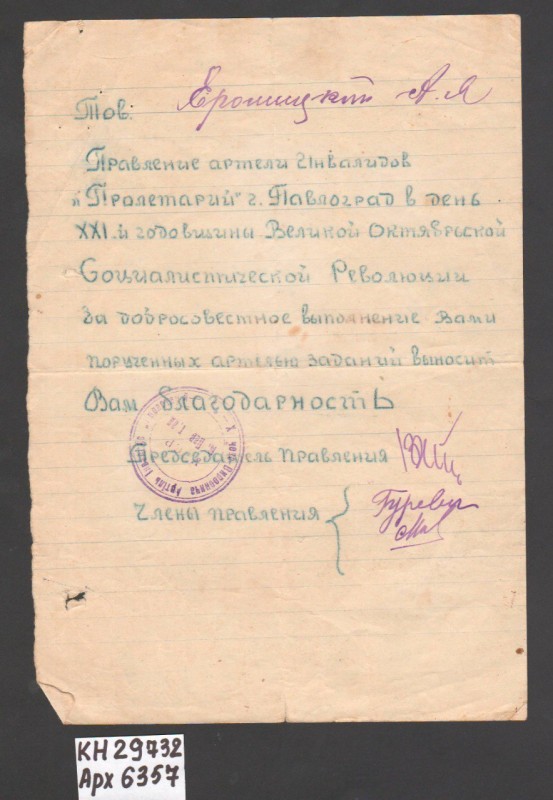 Тов. Ярошицкий А.Я
Правление артели Инвалидов
"Пролетарий" г. Павлоград в день
XXI-й годовщины Великой Октябрьской
Социалистической Революции
за добросовестное выполнение Вами
порученных артелью заданий выносит
Вам благодарность
Председатель правления
Члены правления
Гуревич
КН 29732
Арх 6357